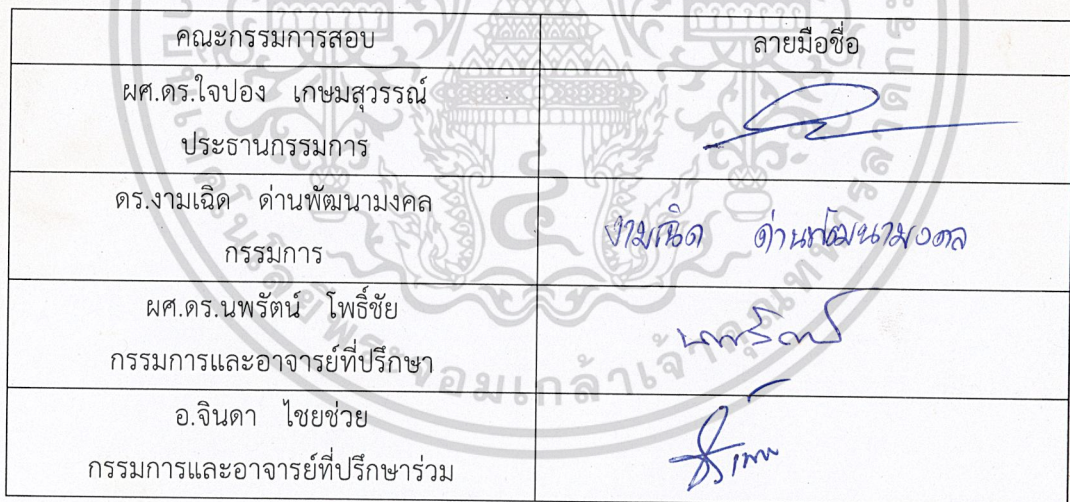 คณะกรรมการสอบ ลายมือชื่อ
ผศ.ดร.ใจปอง เกษมสุวรรณ์
ประธานกรรมการ
ดร.งามเฉิด ด่านพัฒนามงคล
กรรมการ
งามเฉิด ด่านพัฒนามงคล
ผศ.ดร.นพรัตน์ โพธิ์ชัย
กรรมการและอาจารย์ที่ปรึกษา
นพรัตน์
อ.จินดา ไชยช่วย
กรรมการและอาจารย์ที่ปรึกษาร่วม